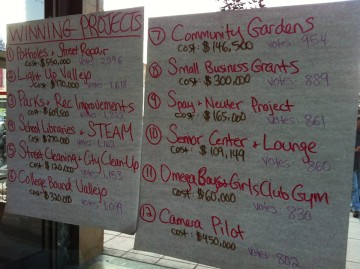 WINNING PROJECTS
① Potholes + Street Repair
cost: $550,000 votes: 2096
② Light Up Vallejo
cost: $170,000
③ Parks + Rec Improvements
cost:
④ School Libraries + STEAM
cost: $270,000
⑤ Street Cleaning + City Clean Up
cost: $120,000 votes: 1,153
⑥ College Bound Vallejo
cost: $320,000
⑦ Community Gardens
cost: $146,500 votes: 954
⑧ Small Business Grants
cost: $300,000 votes: 889
⑨ Spay + Neuter Project
cost: $165,000 votes: 861
⑩ Senior Center + Lounge
cost: $109,149 votes: 860
⑪ Omega Boys + Girls Club Gym
cost: $60,000 votes: 830
⑫ Camera Pilot
cost: $450,000 votes: 802